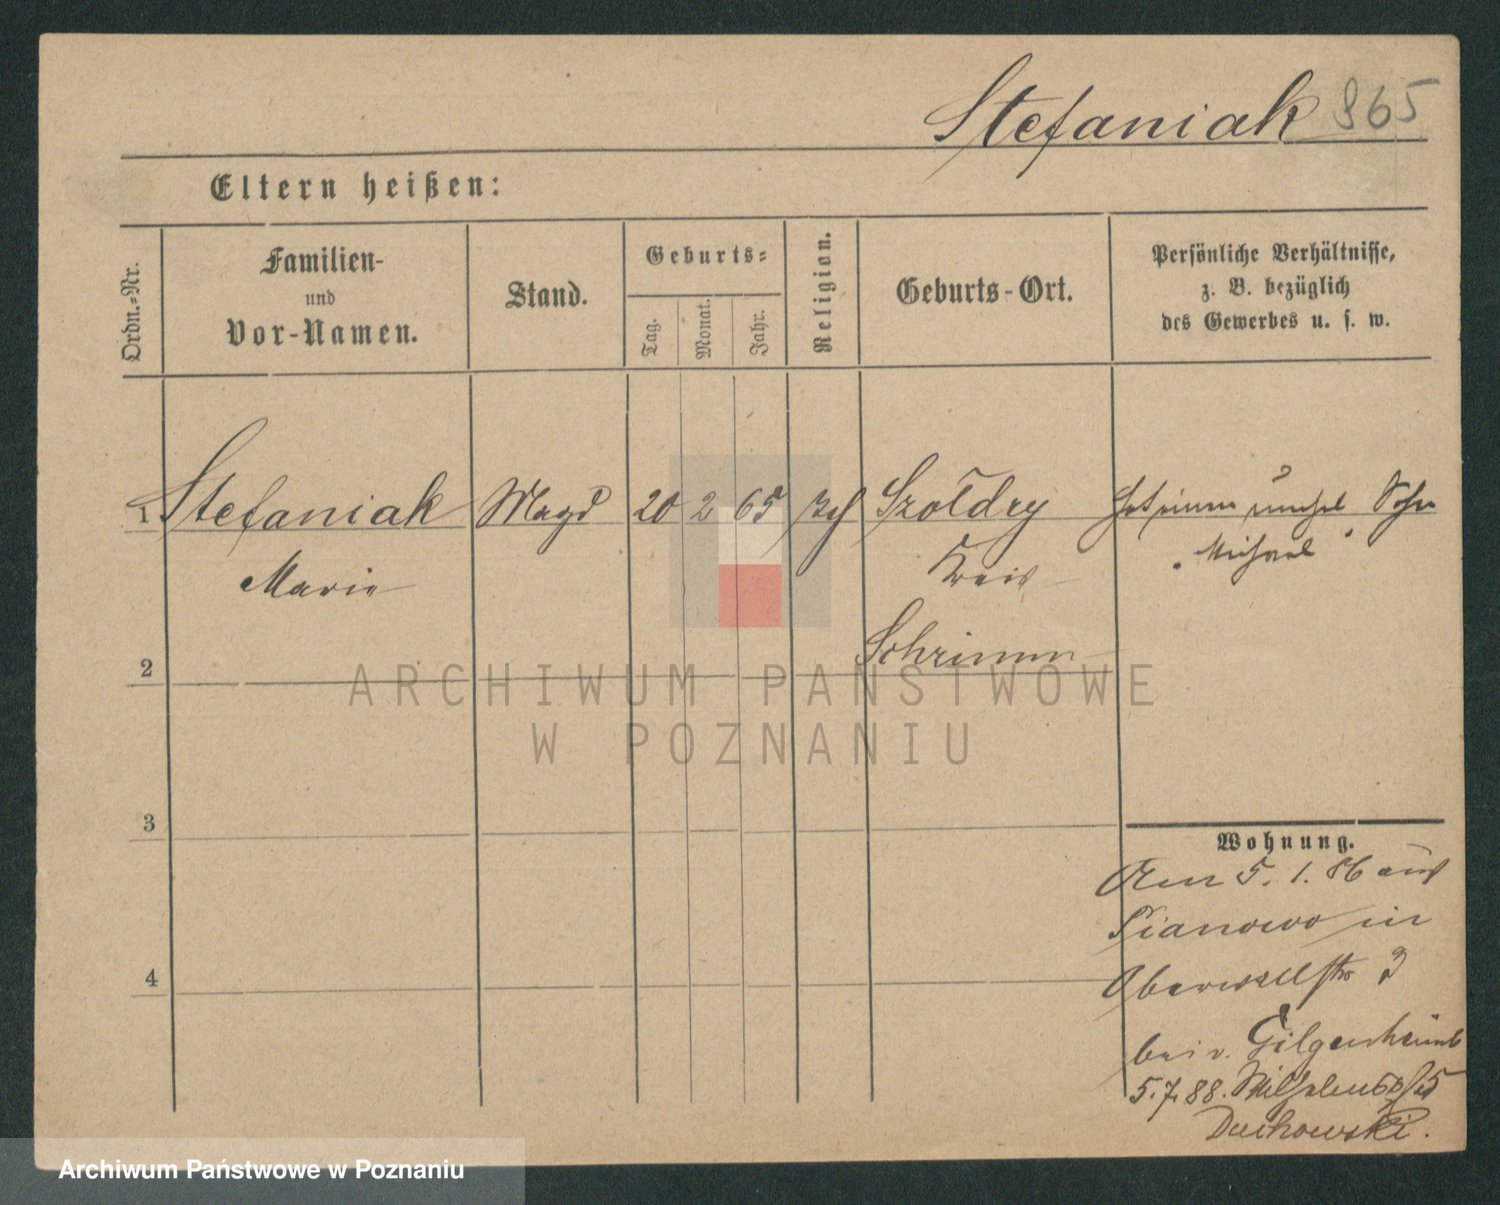 Stefaniak 865
Eltern heißen:
Ordn.-Nr.
Familien-
und
Vor-Namen.
Stand.
Geburts-
Tag.
Monat.
Jahr.
Religion.
Geburts-Ort.
Persönliche Verhältnisse,
z. B. bezüglich
des Gewerbes u. s. w.
1 Stefaniak Magd 20 2 65 Szoldry hat einen unehel. Sohn
Marie Kreis Michael
Schrimm
2
ARCHIWUM PAŃSTWOWE
W POZNANIU
3
Wohnung.
Am 5. 1. 86 aus
Pianowo in
4
Oberwallstr 3
bei v. Gilgenheimb
5.7.88. Wilhelms
Duchowski.
Archiwum Państwowe w Poznaniu